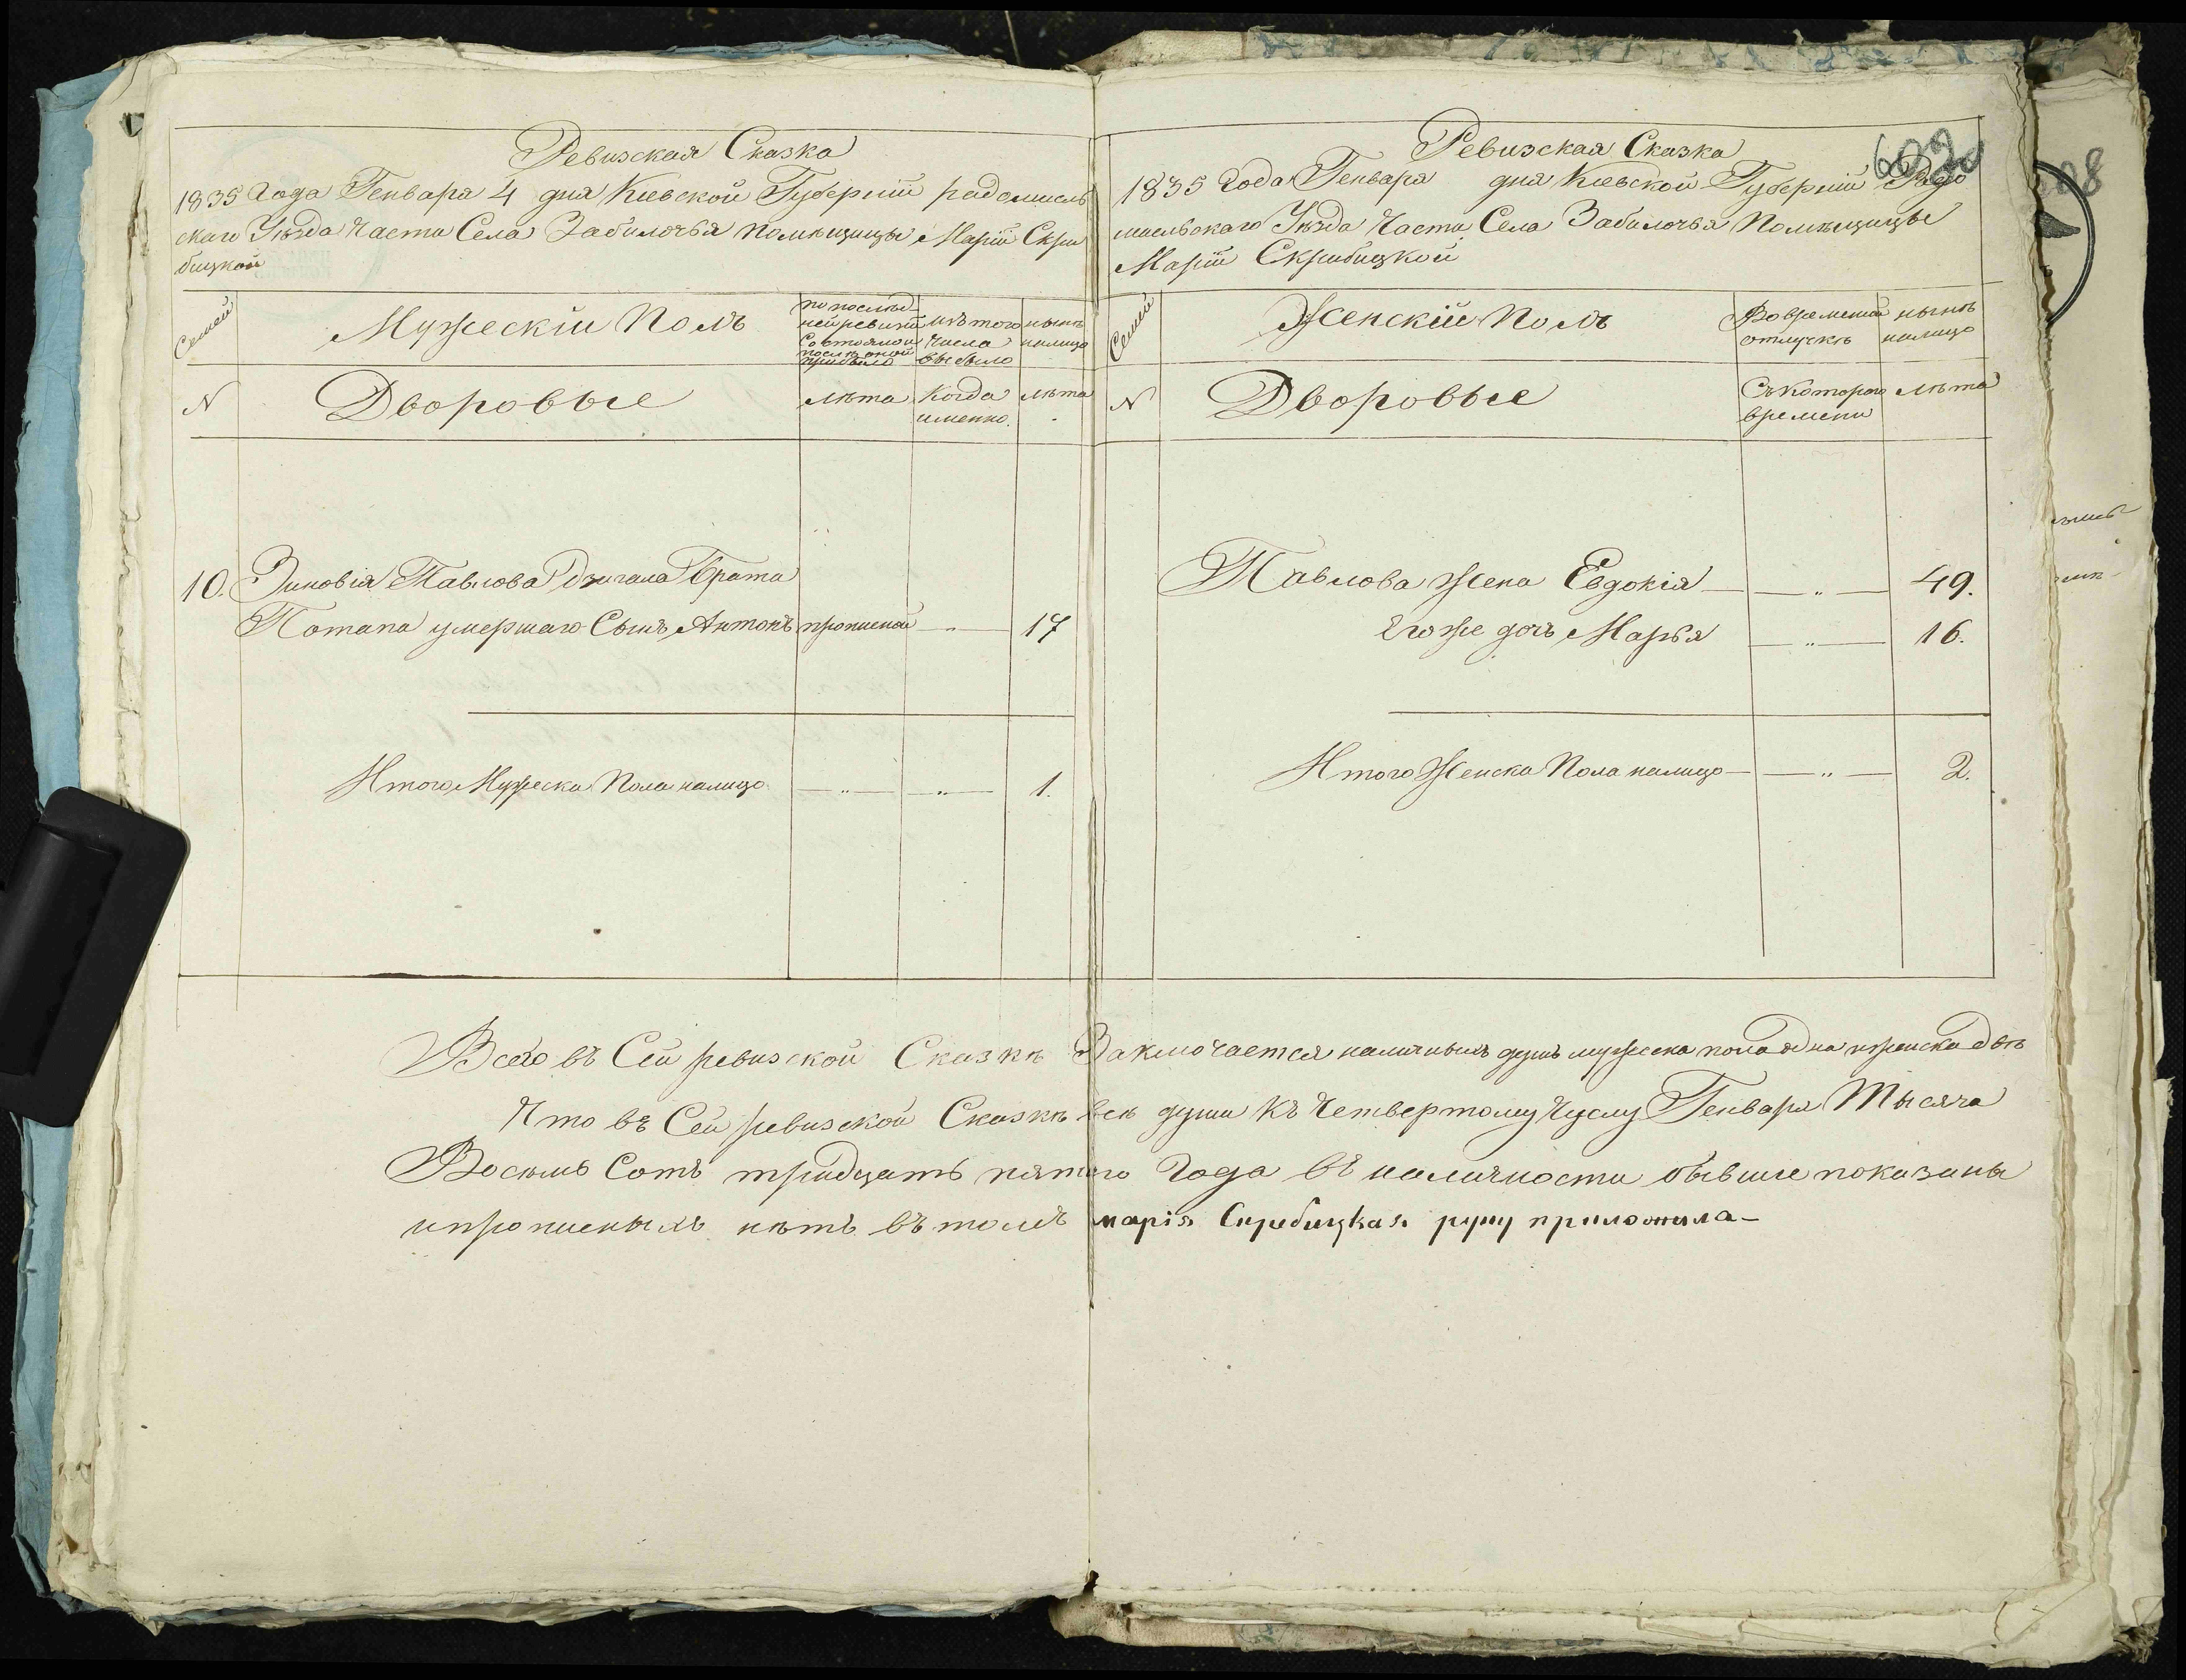 Ревизская Сказка
1835 Года Генваря 4 дня Киевской Губерніи радомысль
скаго Уѣзда Части Села Забилочья помѣщицы Маріи Скри
бицкой
Семей
Мужескій Полъ
по послѣд
ней ревизіи
состояло и
после оной
прибыло
изъ того
числа
выбыло
нынѣ
налицо
N
Дворовые
лѣта
Когда
именно.
лѣта
10. Зиновія Павлова Брата
Потапа умершаго Сынъ Антонъ прописной — " — 17
Итого Мужеска Пола налицо — " — — " — 1.
602
Ревизская Сказка
1835 Года Генваря дня Киевской Губерніи Радо
мысльскаго Уѣзда Части Села Забилочья Помѣщицы
Маріи Скрибицкой
Семей
Женскій Полъ
Во временной
отлучкѣ
нынѣ
налицо
N
Дворовые
Съ котораго
времени
лѣта
Павлова жена Евдокія — — " — 49.
Его же дочь Марья — " — 16.
Итого Женска Пола налицо — — " — 2.
Всего въ Сей ревизской Сказкѣ Заключается наличныхъ душъ мужеска пола одна и женска двѣ
Что въ Сей ревизской Сказкѣ всѣ души къ Четвертому Числу Генваря Тысяча
Восемь Сотъ тридцать пятого Года въ наличности бывшие показаны
и прописныхъ нѣтъ въ томъ марія Скребицкая руку приложила —
608